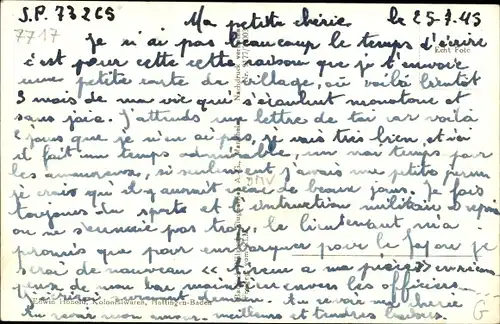 S.P. 73265 Ma petite chérie le 25-7-45
7717
je n'ai pas beaucoup le temps d'écrire
c'est pour cette cette raison que je t'envoie
une petite carte du village, où voilà bientôt
3 mois de ma vie qui s'écoulent monotone et
sans joie. J'attends une lettre de toi car voilà
jours que je n'en ai pas, je vais très bien, et ici
il fait un temps admirable, un vrai temps pour
les amoureux, si seulement j'avais une petite
je crois qu'il y aurait de beaux jours. Je fais
toujours du sport et de l'instruction militaire
on ne s'ennuie pas trop, le lieutenant m'a
promis que pour embarquer pour le Japon je
serai de nouveau
peux de mon bar les officiers
demain. Au revoir ma chérie
Au revoir mon amour. meilleurs et tendres baisers.
Echt Foto
Edwin Honold, Kolonialwaren, Hottingen-Baden
G